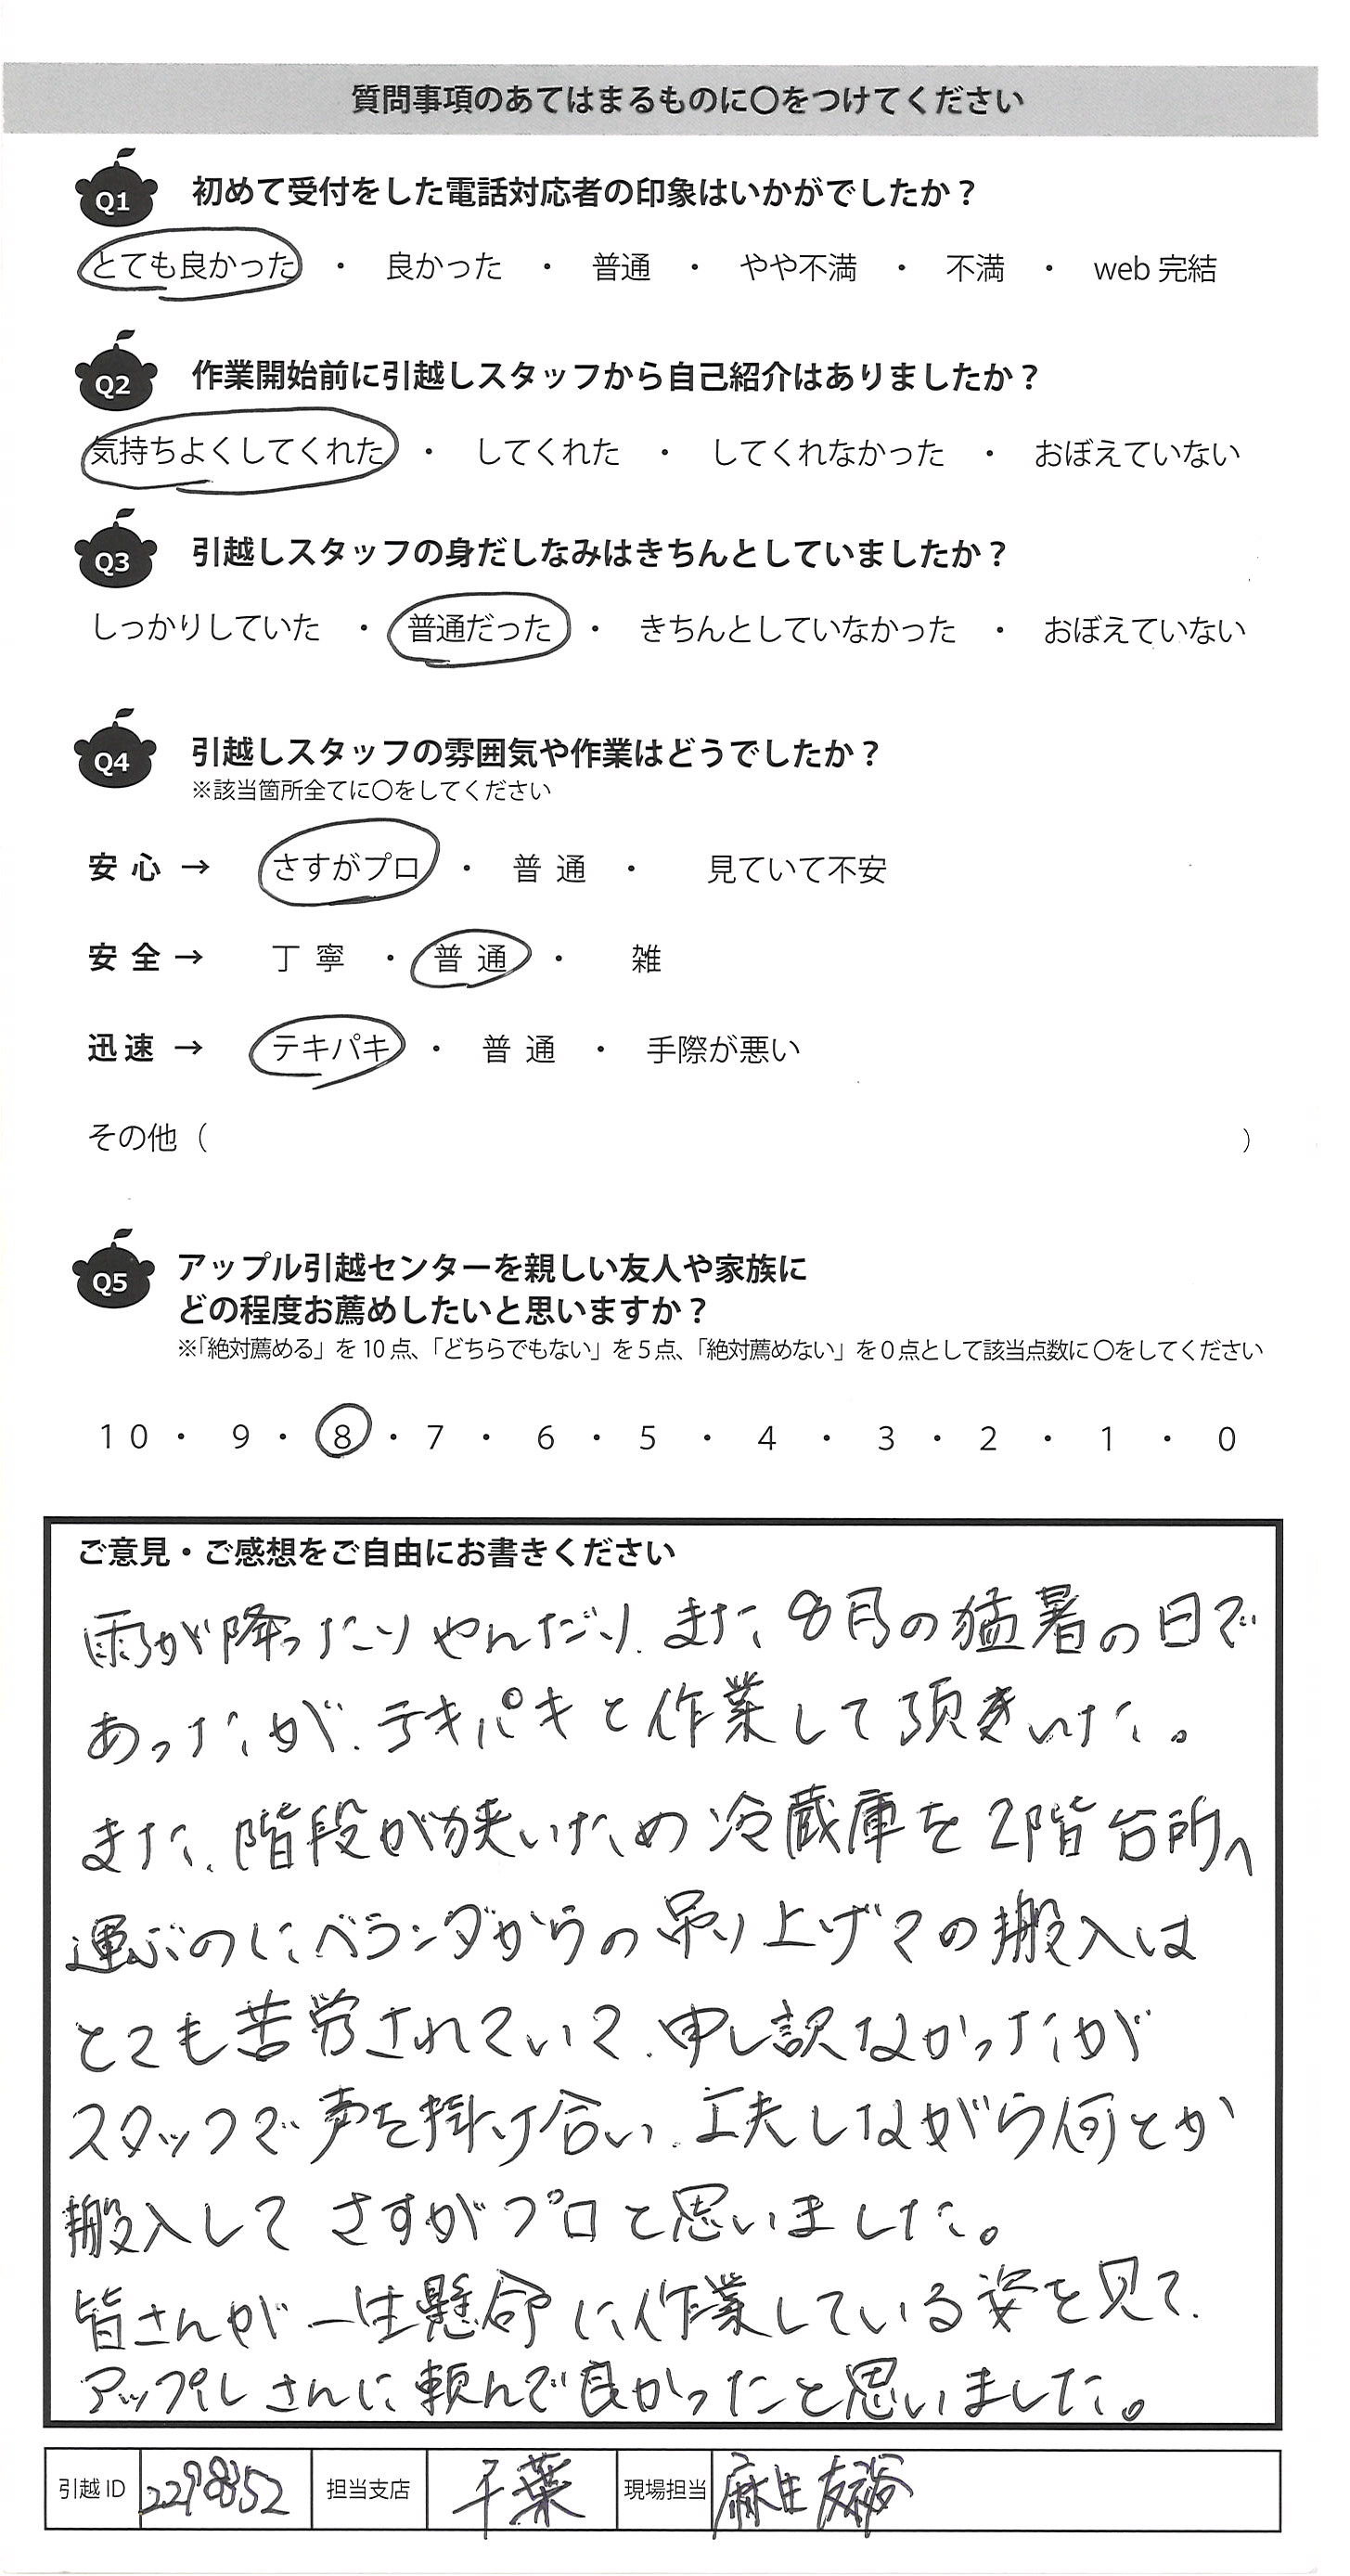 質問事項のあてはまるものに○をつけてください
Q1 初めて受付をした電話対応者の印象はいかがでしたか?
とても良かった ・ 良かった ・ 普通 ・ やや不満 ・ 不満 ・ web完結
Q2 作業開始前に引越しスタッフから自己紹介はありましたか?
気持ちよくしてくれた ・ してくれた ・ してくれなかった ・ おぼえていない
Q3 引越しスタッフの身だしなみはきちんとしていましたか?
しっかりしていた ・ 普通だった ・ きちんとしていなかった ・ おぼえていない
Q4 引越しスタッフの雰囲気や作業はどうでしたか?
※該当箇所全てに○をしてください
安心 → さすがプロ ・ 普通 ・ 見ていて不安
安全 → 丁寧 ・ 普通 ・ 雑
迅速 → テキパキ ・ 普通 ・ 手際が悪い
その他( )
Q5 アップル引越センターを親しい友人や家族に
どの程度お薦めしたいと思いますか?
※「絶対薦める」を10点、「どちらでもない」を5点、「絶対薦めない」を0点として該当点数に○をしてください
10 ・ 9 ・ 8 ・ 7 ・ 6 ・ 5 ・ 4 ・ 3 ・ 2 ・ 1 ・ 0
ご意見・ご感想をご自由にお書きください
雨が降ったりやんだり、また8月の猛暑の日で
あったが、テキパキと作業して頂きいた。
また、階段が狭いため冷蔵庫を2階台所へ
運ぶのにベランダからの吊り上げての搬入は
とても苦労されていて、申し訳なかったが
スタッフで声を掛け合い、工夫しながら何とか
搬入して さすがプロと思いました。
皆さんが一生懸命に作業している姿を見て、
アップルさんに頼んで良かったと思いました。
引越ID 2298352 担当支店 千葉 現場担当 麻生友裕